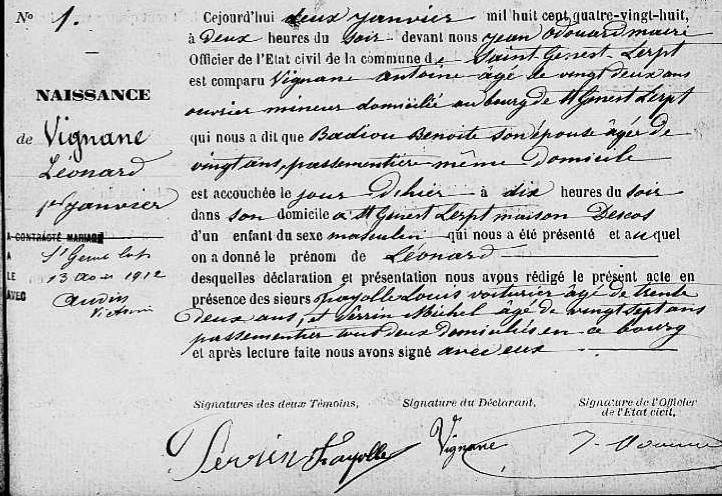 N° 1.
NAISSANCE
de Vignane
Léonard
1er janvier
A CONTRACTÉ MARIAGE
A St Genest Lerpt
LE 13 1912
AVEC Audin
Victorine
Cejourd'hui deux janvier mil huit cent quatre-vingt-huit,
à deux heures du soir devant nous Jean Edouard maire
Officier de l'Etat civil de la commune de Saint Genest-Lerpt
est comparu Vignane Antoine âgé de vingt deux ans
ouvrier mineur domicilié au bourg de St Genest Lerpt
qui nous a dit que Badiou Benoite son épouse âgée de
vingt ans, passementière même domicile
est accouchée le jour d'hier à dix heures du soir
dans son domicile à St Genest Lerpt maison Descos
d'un enfant du sexe masculin qui nous a été présenté et auquel
on a donné le prénom de Léonard
desquelles déclaration et présentation nous avons rédigé le présent acte en
présence des sieurs Fayolle Louis voiturier âgé de trente
deux ans, et Perrin Michel âgé de vingt sept ans
passementier tout deux domiciliés en ce bourg
et après lecture faite nous avons signé avec eux
Signatures des deux Témoins,
Signature du Déclarant,
Signature de l'Officier
de l'Etat civil,
Perrin Fayolle
Vignane